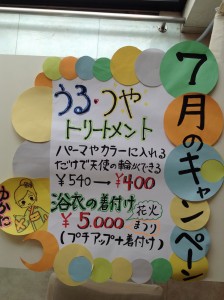 7月のキャンペーン
うる・つや
トリートメント
パーマやカラーに入れる
だけで天使の輪ができる
¥540→¥400
浴衣の着付け
¥5.000
花火
まつり
(プチアップ+着付け)